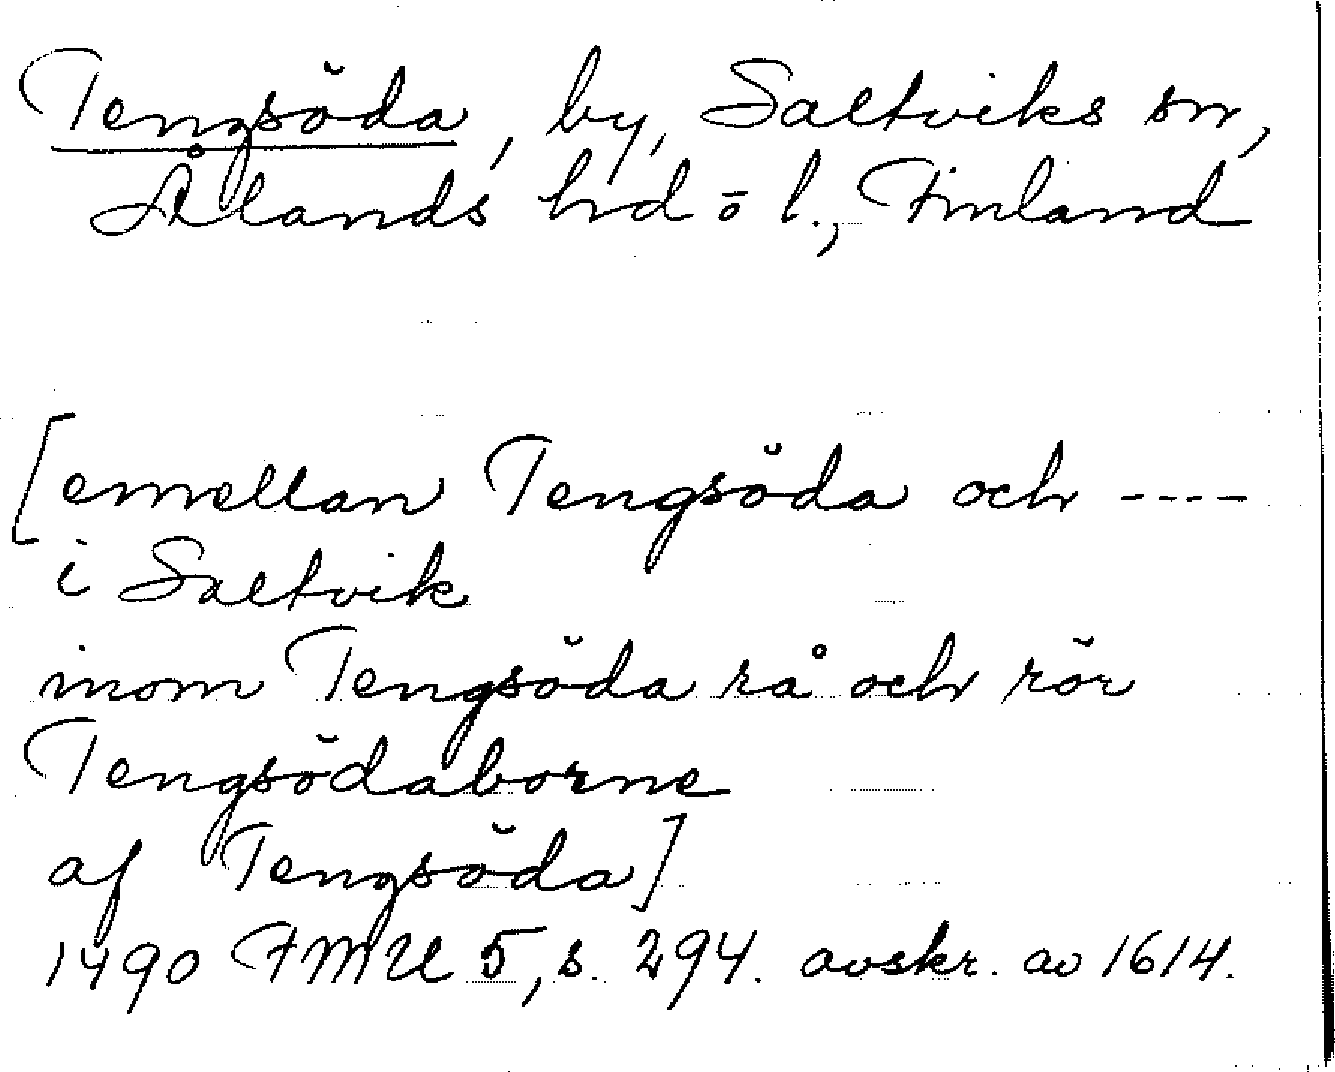 Tengsöda, by, Saltviks sn,
Ålands hd ō l., Finland
[emellan Tengsöda och ----
i Saltvik
inom Tengsöda rå och rör
Tengsödaborne
af Tengsöda]
1490 FMU 5, s. 294. avskr. av 1614.